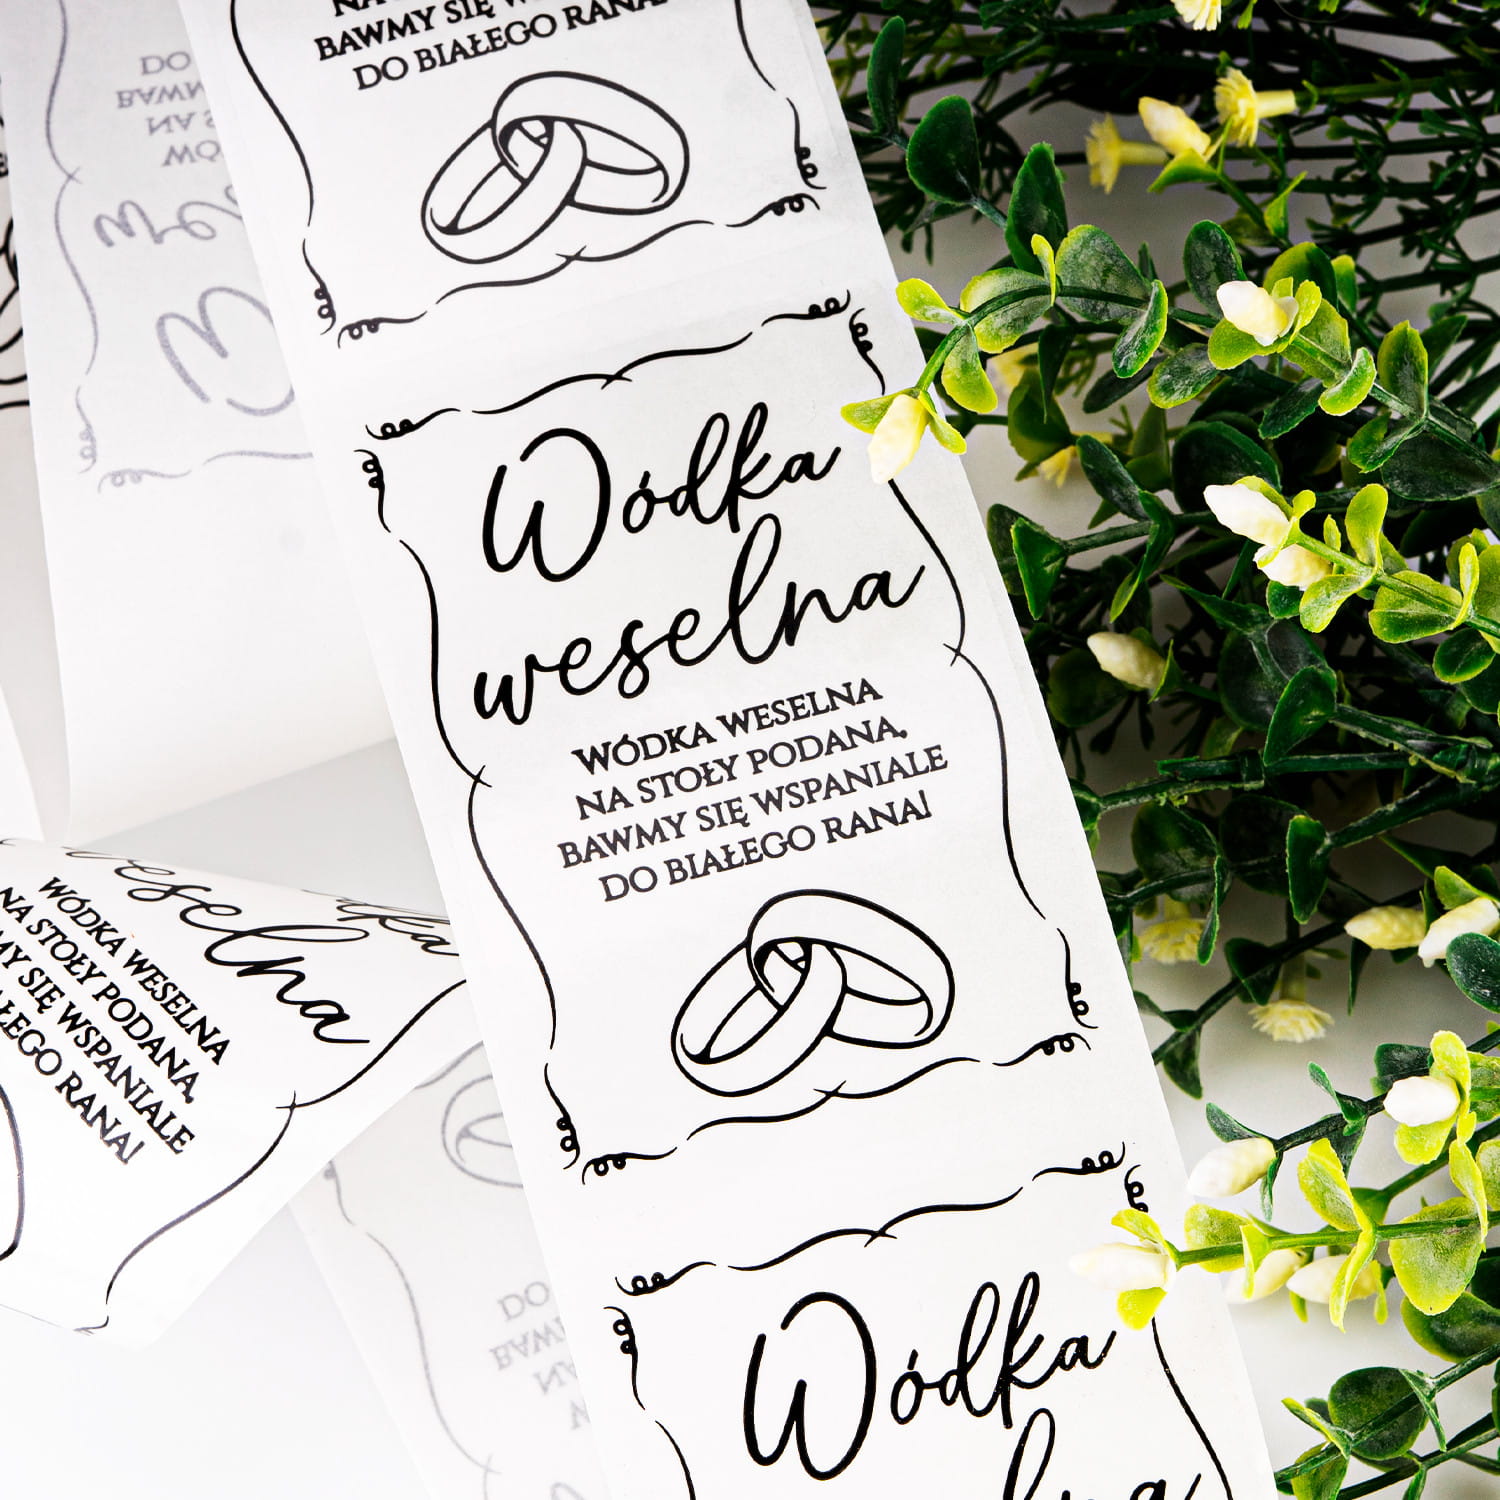 BAWMY SIĘ
DO BIAŁEGO RANA!
Wódka
weselna
WÓDKA WESELNA
NA STOŁY PODANA,
BAWMY SIĘ WSPANIALE
DO BIAŁEGO RANA!
weselna
WÓDKA WESELNA
NA STOŁY PODANA,
MY SIĘ WSPANIALE
ŁEGO RANA!
Wódka